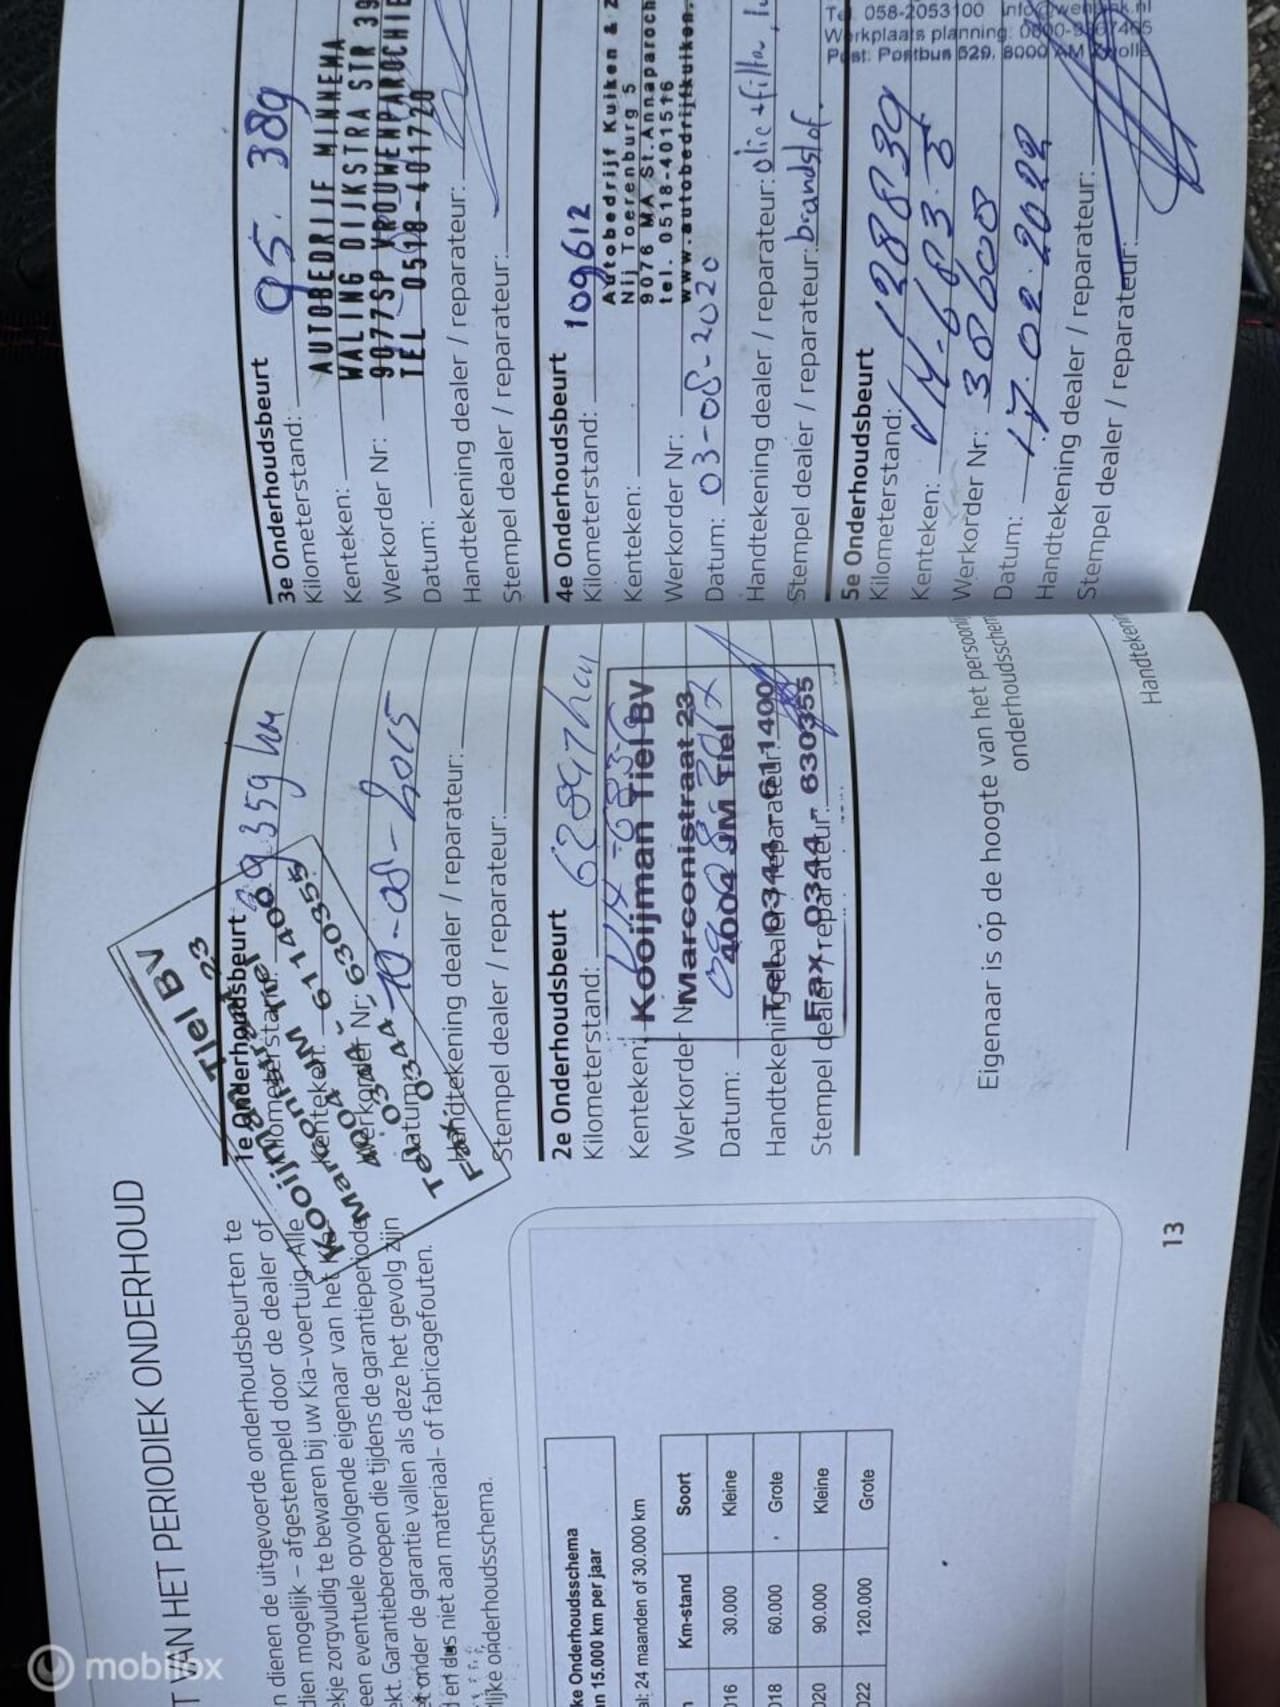 T VAN HET PERIODIEK ONDERHOUD
n dienen de uitgevoerde onderhoudsbeurten te
dien mogelijk – afgestempeld door de dealer of
ekje zorgvuldig te bewaren bij uw Kia-voertuig. Alle
een eventuele opvolgende eigenaar van het
ekt. Garantieberoepen die tijdens de garantieperiode
onder de garantie vallen als deze het gevolg zijn
niet aan materiaal- of fabricagefouten.
lijke onderhoudsschema.
ke Onderhoudsschema
n 15.000 km per jaar
al: 24 maanden of 30.000 km
Km-stand Soort
016 30.000 Kleine
018 60.000 Grote
020 90.000 Kleine
022 120.000 Grote
13
1e Onderhoudsbeurt
Kilometerstand: 9359 km
Kenteken:
Werkorder Nr:
Datum: 10-08-2015
Handtekening dealer / reparateur:
Stempel dealer / reparateur:
Kooijman Tiel BV
Marconistraat 23
4004 JM Tiel
Tel. 0344 - 611400
Fax. 0344 - 630355
2e Onderhoudsbeurt
Kilometerstand: 62897 km
Kenteken:
Werkorder Nr
Datum:
Handtekening dealer / reparateur:
Stempel dealer / reparateur:
Kooijman Tiel BV
Marconistraat 23
4004 JM Tiel
Tel. 0344 - 611400
Fax. 0344 - 630355
Eigenaar is op de hoogte van het persoonlij
onderhoudsschem
Handtekeni
3e Onderhoudsbeurt
Kilometerstand: 95.389
Kenteken:
Werkorder Nr:
Datum:
Handtekening dealer / reparateur:
Stempel dealer / reparateur:
AUTOBEDRIJF MINNEMA
WALING DIJKSTRA STR 39
9077SP VROUWENPAROCHIE
TEL 0518-401720
4e Onderhoudsbeurt
Kilometerstand: 109612
Kenteken:
Werkorder Nr:
Datum: 03-08-2020
Handtekening dealer / reparateur: olie + filter,
Stempel dealer / reparateur: brandstof.
Autobedrijf Kuiken & Z
Nij Toerenburg 5
9076 MA St.Annaparoch
tel. 0518-401516
www.autobedrijfkuiken.
5e Onderhoudsbeurt
Kilometerstand: 128839
Kenteken:
Werkorder Nr:
Datum: 17.02.2022
Handtekening dealer / reparateur:
Stempel dealer / reparateur:
Tel. 058-2053100
Werkplaats planning:
Post: Postbus 529, 8000 AM Zwolle
mobilox